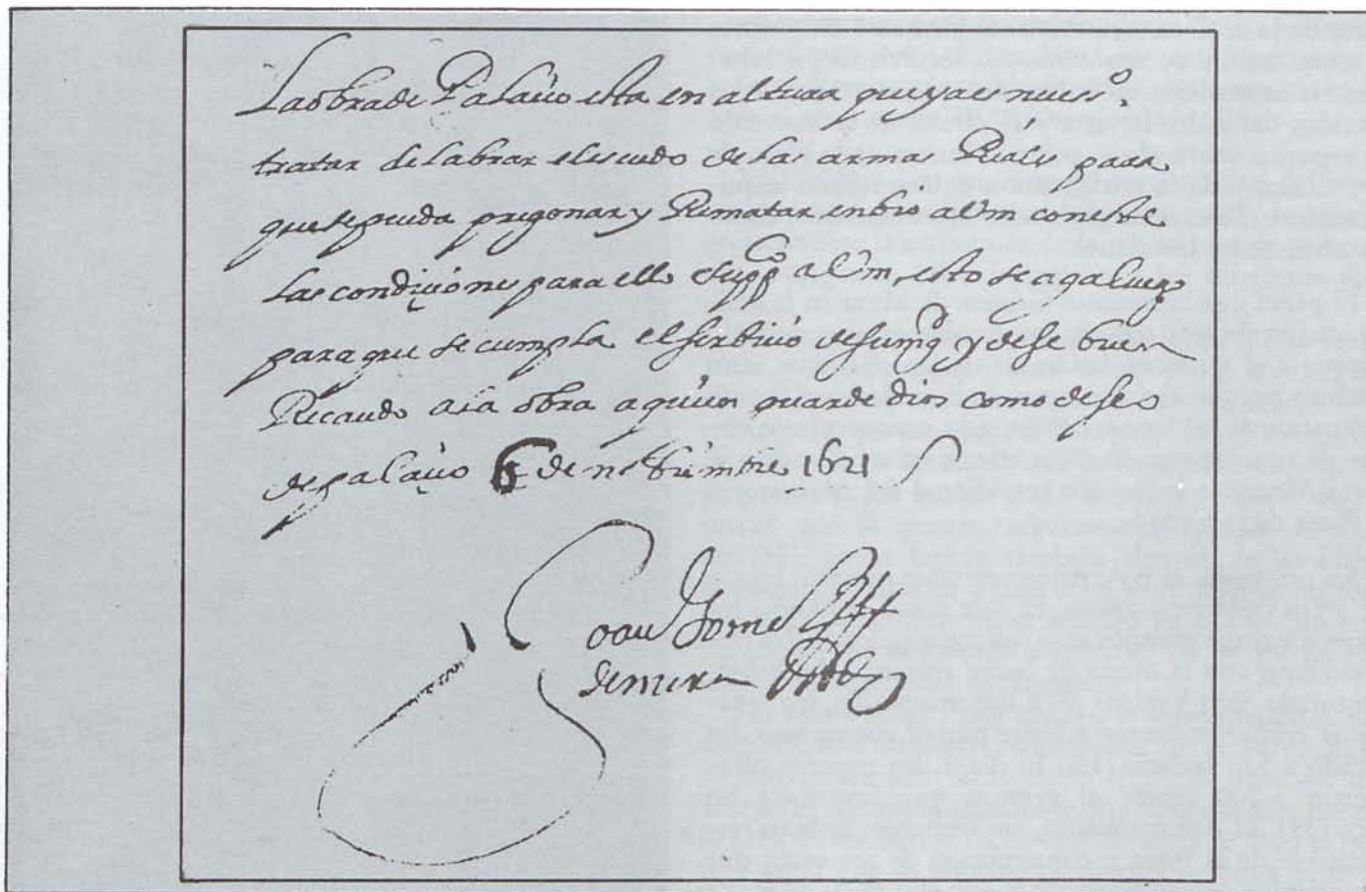 La obra de Palaçio esta en altura que ya es neces.º
tratar de labrar el escudo de las armas Reales para
que se pueda pregonar y Rematar enbio a Vm con este
las condiçiones para ello y supp.co a Vm, esto se aga luego
para que se cumpla el serbicio de su mg.d y dese buen
Recaudo a la obra a quien guarde dios como deseo
de palaçio 6 de nobiembre 1621
Joan Gomez
de mora